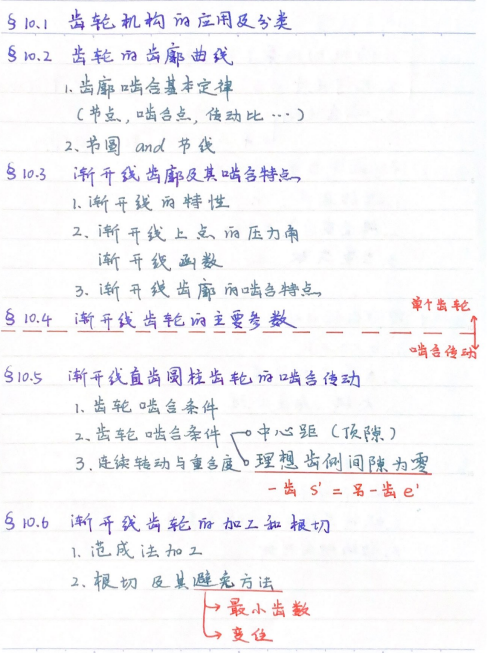 §10.1 齿轮机构的应用及分类
§10.2 齿轮的齿廓曲线
1. 齿廓啮合基本定律
（节点, 啮合点, 传动比…）
2. 节圆 and 节线
§10.3 渐开线齿廓及其啮合特点
1. 渐开线的特性
2. 渐开线上点的压力角
渐开线函数
3. 渐开线齿廓的啮合特点
单个齿轮
§10.4 渐开线齿轮的主要参数
啮合传动
§10.5 渐开线直齿圆柱齿轮的啮合传动
1. 齿轮啮合条件
2. 齿轮啮合条件 中心距（顶隙）
3. 连续转动与重合度 理想齿侧间隙为零
一齿 s' = 另一齿 e'
§10.6 渐开线齿轮的加工和根切
1. 范成法加工
2. 根切及其避免方法
→ 最小齿数
→ 变位